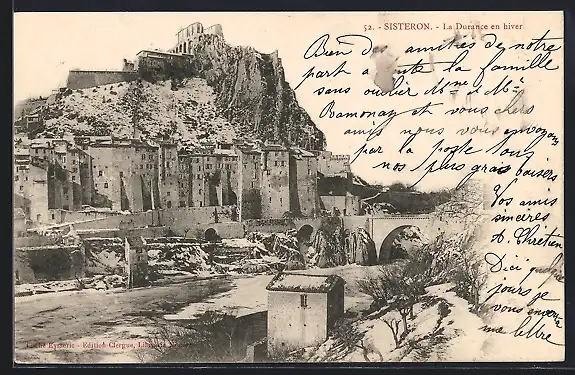 52. - SISTERON. - La Durance en hiver
Bien des amitiés de notre
part a toute la famille
sans oublier Mme et Mr
Ramonay et vous chers
amis nous vous envoyons
par la poste tous
nos plus gros baisers
Vos amis
sincères
A. Chrétien
Dici quelque
jours je
vous enverrai
une lettre
Edition Clergue,